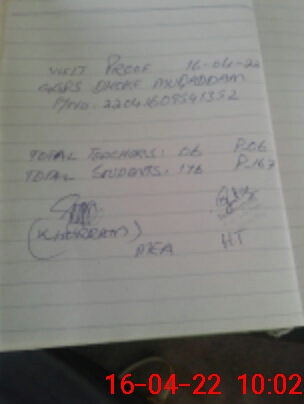 VISIT PROOF 16-04-22
GGPS DHOKE MUQADDAM
TOTAL TEACHERS: 06 P.06
TOTAL STUDENTS: 176 P.167
(KHURRAM)
MEA HT
16-04-22 10:02